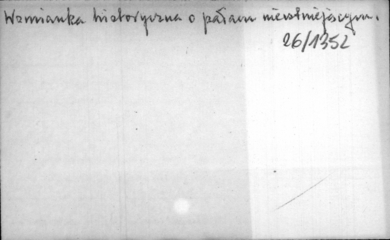 Wzmianka historyczna o pałacu nieistniejącym.
26/1352